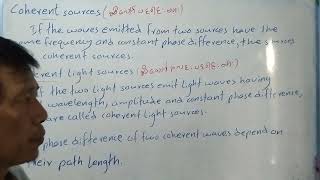 Coherent sources
If the waves emitted from two sources have the
same frequency and constant phase difference, the sources
coherent sources.
erent light sources
the two light sources emit light waves having
wavelength, amplitude and constant phase difference,
are called coherent light sources.
phase difference of two coherent waves depend on
their path length.